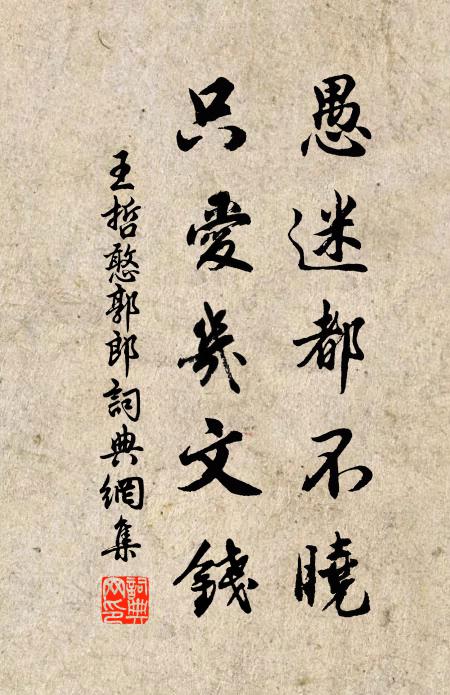 愚迷都不曉
只愛幾文錢
王哲憨郭郎詞典網集